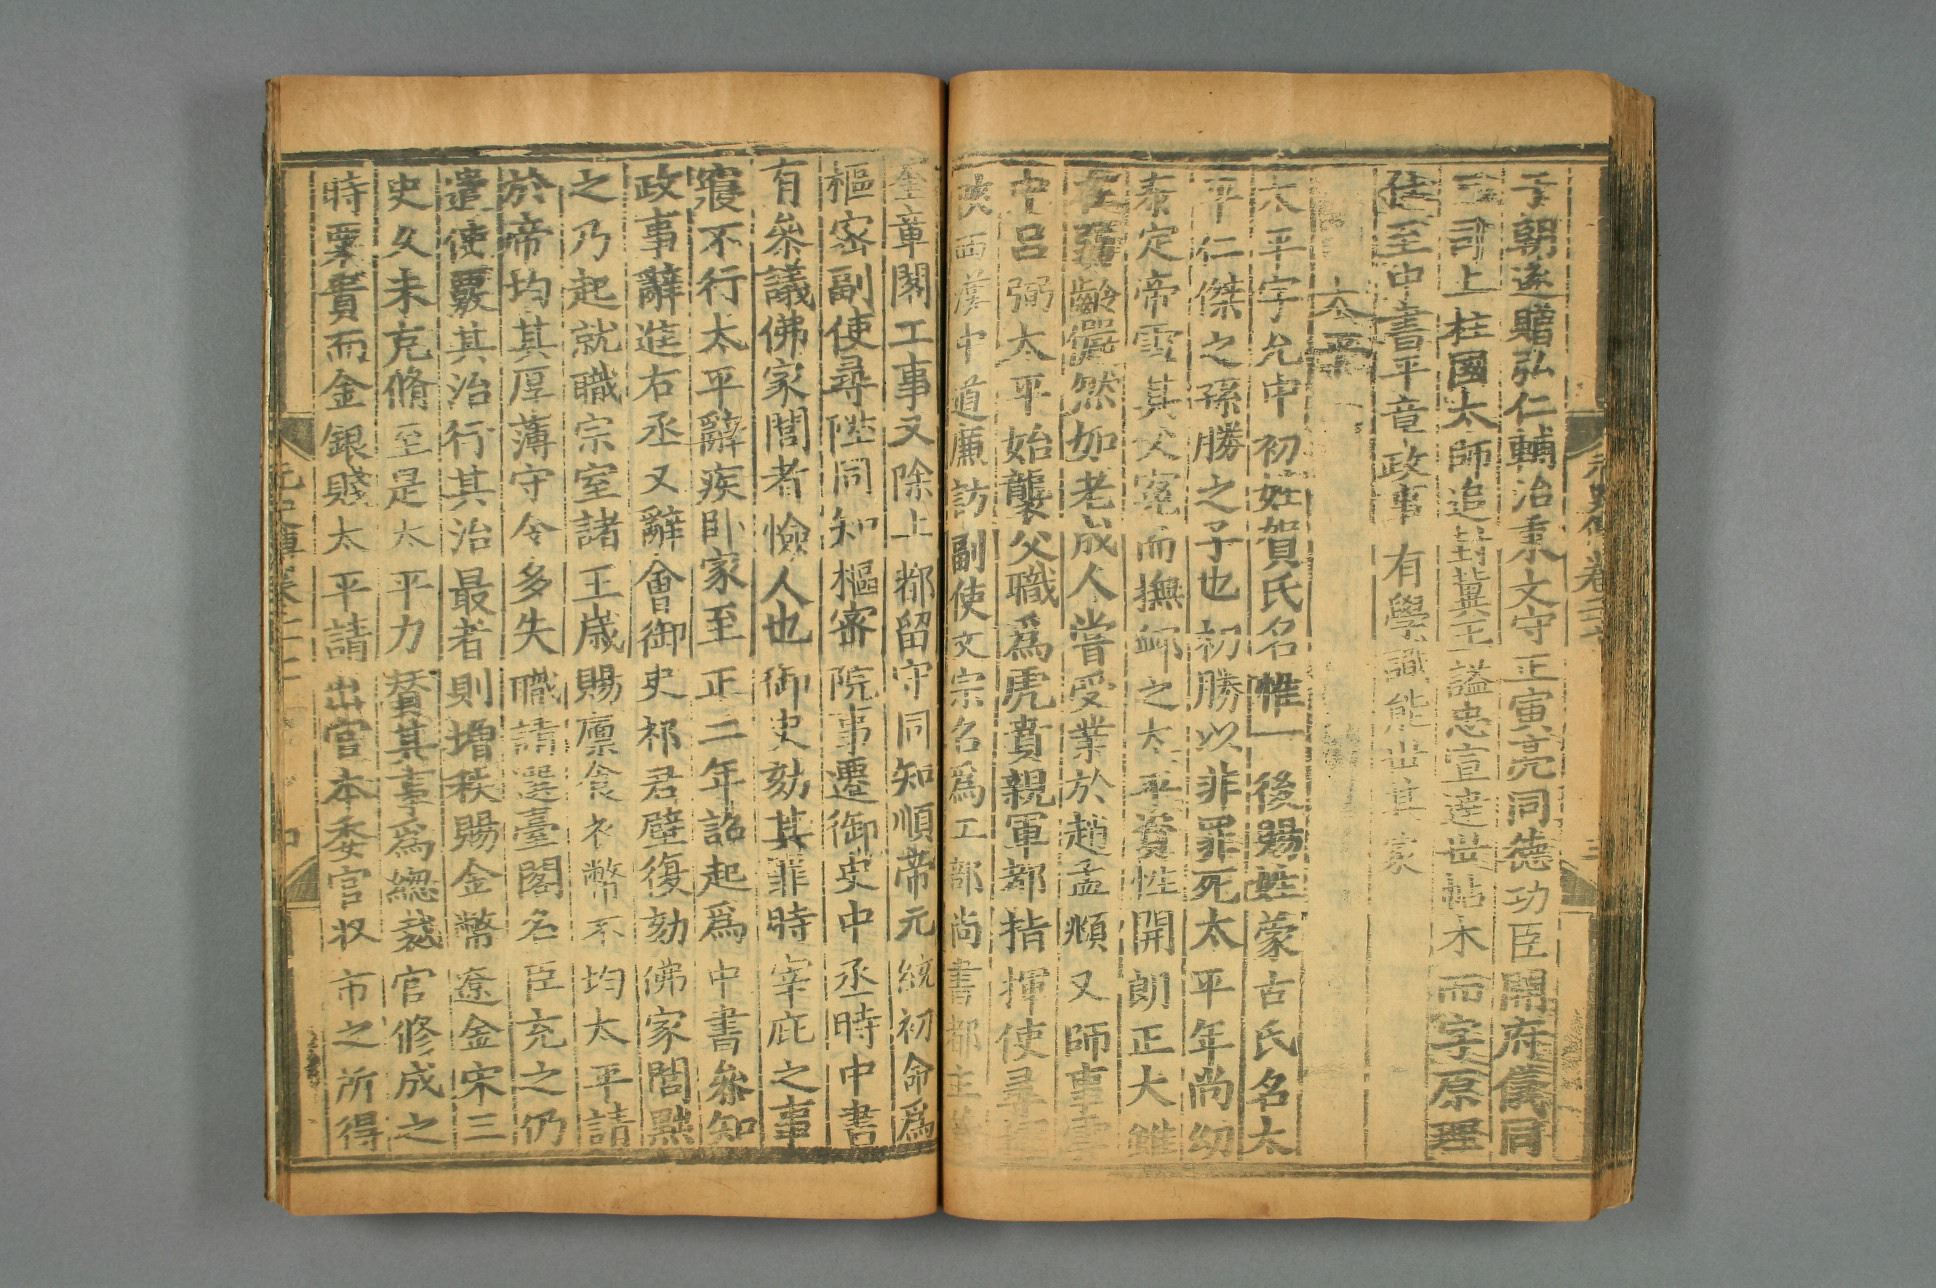 于朝遂贈弘仁輔治秉文守正寅亮同德功臣開府儀同
三司上柱國太師追封冀王謚忠宣達世帖木而字原理
仕至中書平章政事有學識能世其家
太平
太平字允中初姓賀氏名惟一後賜姓蒙古氏名太
平仁傑之孫勝之子也初勝以非罪死太平年尚幼
泰定帝雪其父冤而撫卹之太平資性開朗正大雖
在弱齡儼然如老成人嘗受業於趙孟頫又師事雲
中呂弼太平始襲父職為虎賁親軍都指揮使尋
陝西漢中道廉訪副使文宗名為工部尚書都主
奎章閣工事又除上都留守同知順帝元統初命為
樞密副使尋陞同知樞密院事遷御史中丞時中書
有叅議佛家閭者憸人也御史劾其罪時宰庇之事
寢不行太平辭疾卧家至正二年詔起為中書叅知
政事辭進右丞又辭會御史祁君璧復劾佛家閭黜
之乃起就職宗室諸王歲賜廩食衣幣不均太平請
於帝均其厚薄守令多失職請選臺閣名臣充之仍
遣使覈其治行其治最者則增秩賜金幣遼金宋三
史久未克脩至是太平力賛其事為緫裁官修成之
時粟貴而金銀賤太平請出官本委官收市之所得